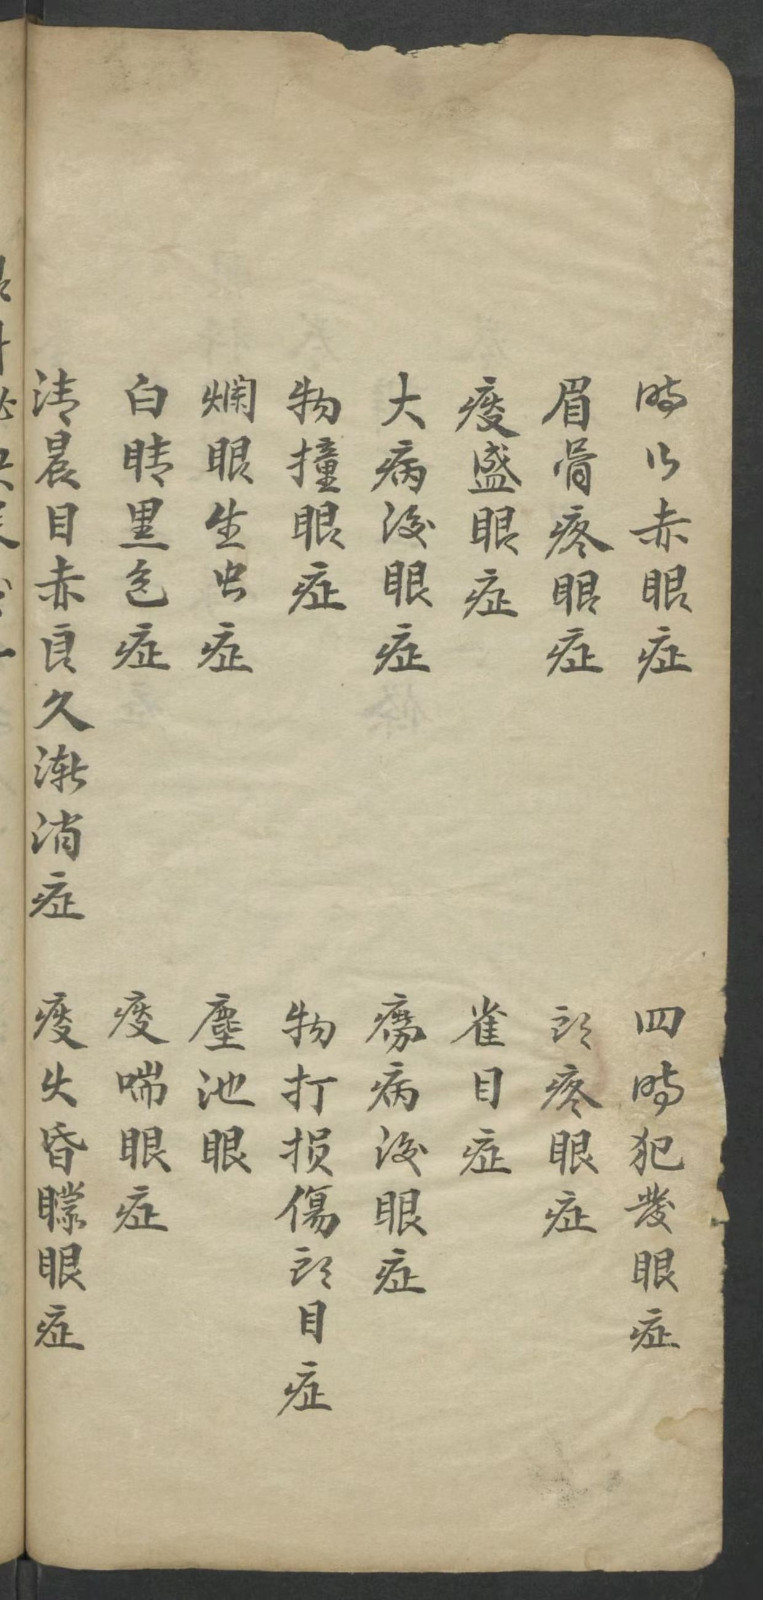 時行赤眼症　四時犯發眼症
眉骨疼眼症　頭疼眼症
痰盛眼症　雀目症
大病後眼症　病後眼症
物撞眼症　物打損傷頭目症
爛眼生虫症　塵池眼
白睛黑色症　痰喘眼症
清晨目赤良久漸消症　痰火昏矇眼症